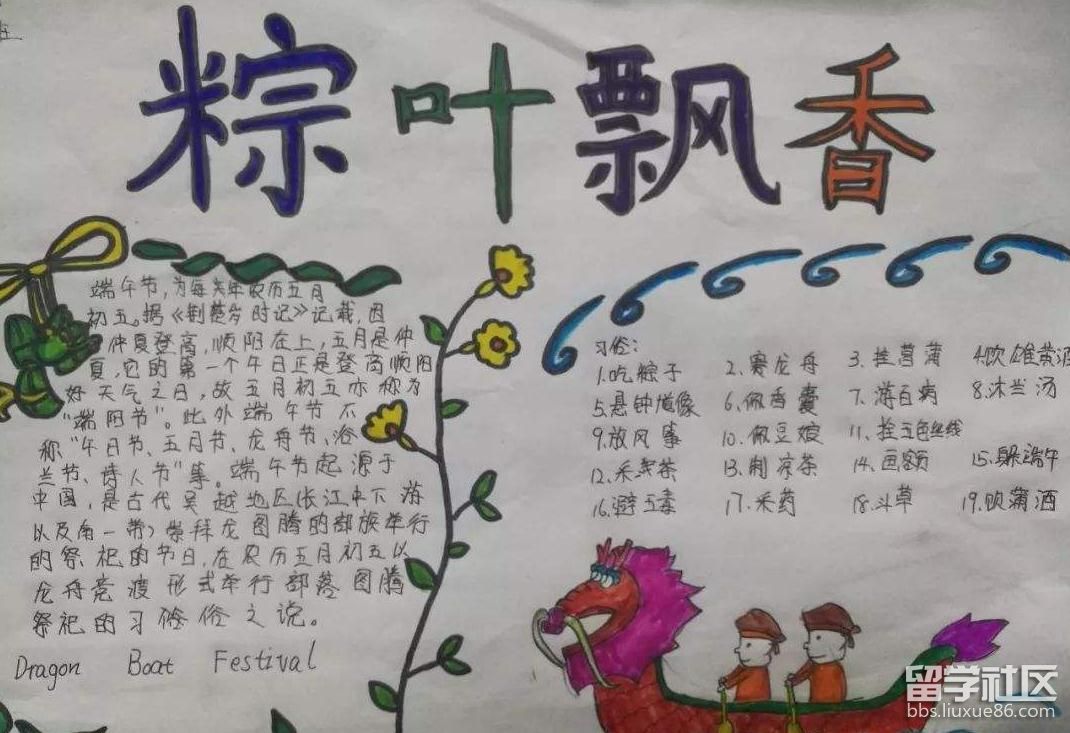 粽叶飘香
端午节,为每年农历五月
初五。据《荆楚岁时记》记载,因
仲夏登高,顺阳在上,五月是仲
夏,它的第一个午日正是登高顺阳
好天气之日,故五月初五亦称为
“端阳节”。此外端午节不
称“午日节、五月节、龙舟节、浴
兰节、诗人节”等。端午节起源于
中国,是古代吴越地区(长江中下游
以及一带)崇拜龙图腾的部族举行
的祭祀的节日,在农历五月初五以
龙舟竞渡形式举行部落图腾
祭祀的习俗之说。
Dragon Boat Festival
习俗:
1.吃粽子 2.赛龙舟 3.挂菖蒲 4.饮雄黄酒
5.悬钟馗像 6.佩香囊 7.游百病 8.沐兰汤
9.放风筝 10.佩豆娘 11.拴五色丝线
12.采茶 13.制凉茶 14.画额 15.躲端午
16.避五毒 17.采药 18.斗草 19.饮蒲酒
留学社区
bbs.liuxue86.com